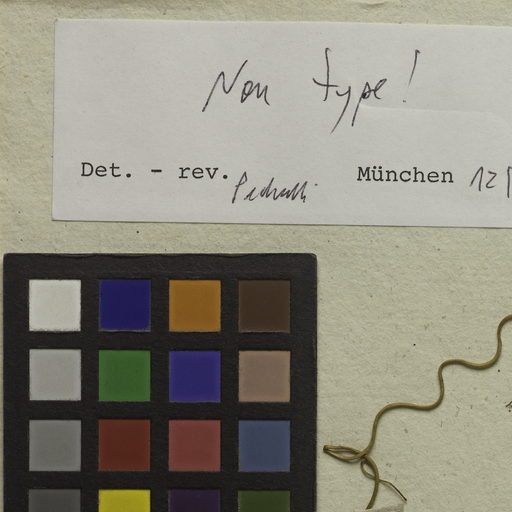 Non type!
Det. - rev. Pedrotti München 12